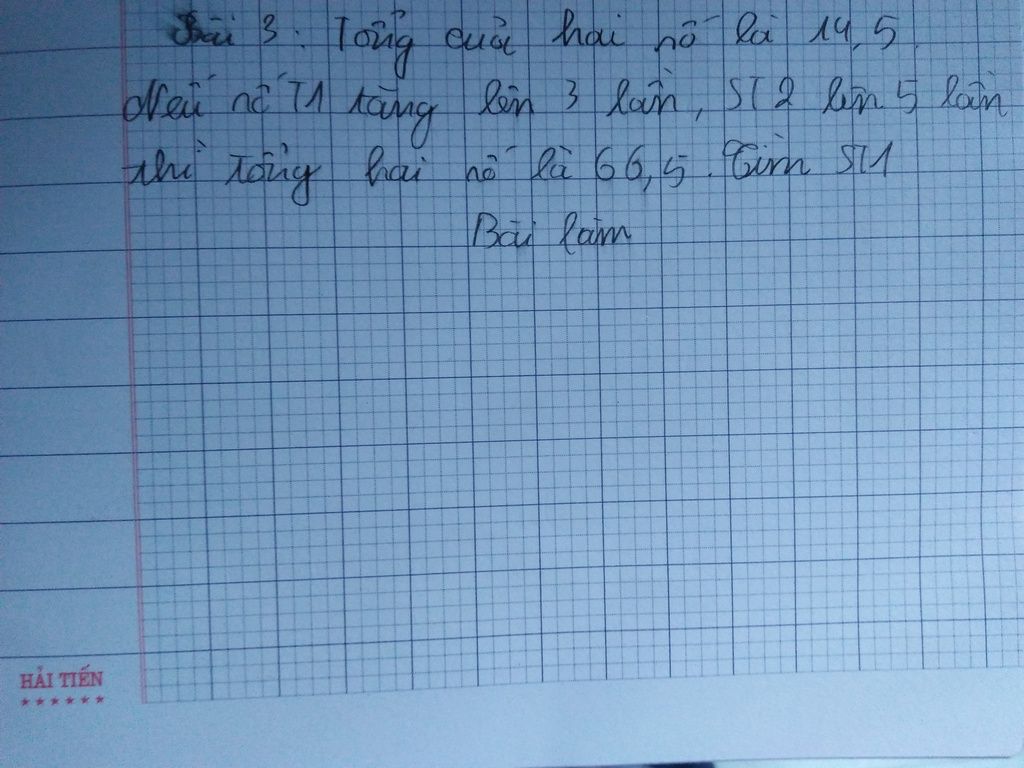 Bài 3: Tổng của hai số là 14,5
Nếu số T1 tăng lên 3 lần, ST2 lên 5 lần
thì tổng hai số là 66,5. Tìm ST1
Bài làm
HẢI TIẾN